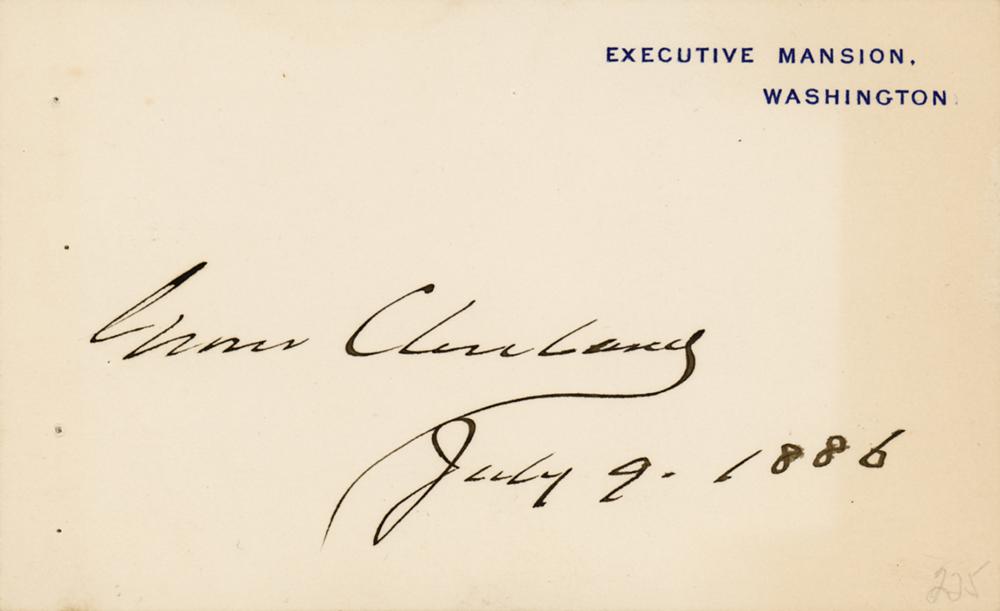 EXECUTIVE MANSION,
WASHINGTON.
Grover Cleveland
July 9. 1886
225